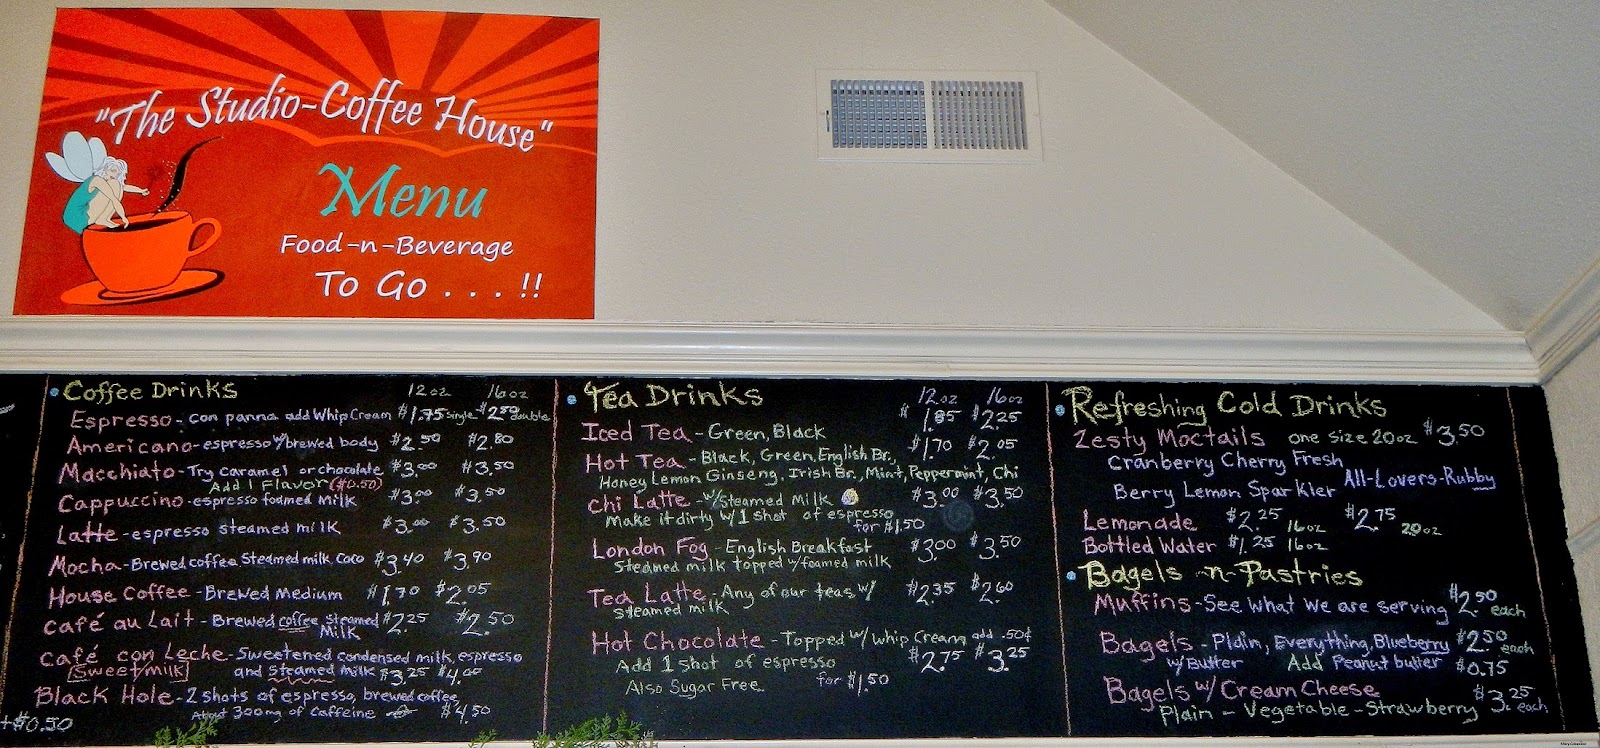 "The Studio-Coffee House"
Menu
Food-n-Beverage
To Go . . . !!
Coffee Drinks 12oz 16oz
Espresso - con panna add Whip Cream $1.75 single $2.50 double
Americano - espresso w/brewed body $2.50 $2.80
Macchiato - Try caramel or chocolate $3.00 $3.50
Add 1 Flavor ($0.50)
Cappuccino - espresso foamed milk $3.00 $3.50
Latte - espresso steamed milk $3.00 $3.50
Mocha - Brewed coffee Steamed milk, Coco $3.40 $3.90
House Coffee - Brewed Medium $1.70 $2.05
café au Lait - Brewed coffee steamed $2.25 $2.50
Milk
café con Leche - Sweetened condensed milk, espresso
Sweet milk and Steamed milk $3.25 $4.00
Black Hole - 2 shots of espresso, brewed coffee,
About 300mg of Caffeine $4.50
+$0.50
Tea Drinks 12oz 16oz
$1.85 $2.25
Iced Tea - Green, Black
$1.70 $2.05
Hot Tea - Black, Green, English Br.,
Honey Lemon Ginseng, Irish Br., Mint, Peppermint, Chi
Chi Latte - w/Steamed Milk $3.00 $3.50
Make it dirty w/1 shot of espresso
for $1.50
London Fog - English Breakfast $3.00 $3.50
Steamed milk topped w/foamed milk
Tea Latte - Any of our teas w/ $2.35 $2.60
steamed milk
Hot Chocolate - Topped w/ whip Cream add .50¢
$2.75 $3.25
Add 1 shot of espresso
for $1.50
Also Sugar Free.
Refreshing Cold Drinks
Zesty Moctails one size 20oz $3.50
Cranberry Cherry Fresh
All-Lovers-Rubby
Berry Lemon Sparkler
Lemonade $2.25 16oz $2.75 20oz
Bottled Water $1.25 16oz
Bagels -n- Pastries
Muffins - See what we are serving $2.50 each
Bagels - Plain, Everything, Blueberry $2.50 each
w/Butter Add Peanut butter $0.75
Bagels w/Cream Cheese $3.25 each
Plain - Vegetable - Strawberry